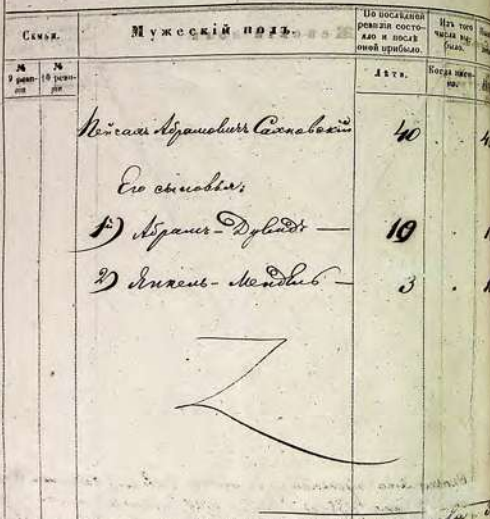 Семьи.
Мужескій полъ.
По послѣдней
ревизіи состо-
яло и послѣ
оной прибыло.
Изъ того
числа вы-
было.
№
9 реви-
зіи
№
10 реви-
зіи
Лѣта.
Когда имен-
но.
Пейсахъ Абрамовичъ Сахновскій 40
Его сыновья:
1й) Абрамъ-Дувидъ — 19
2) Янкель-Мендель — 3